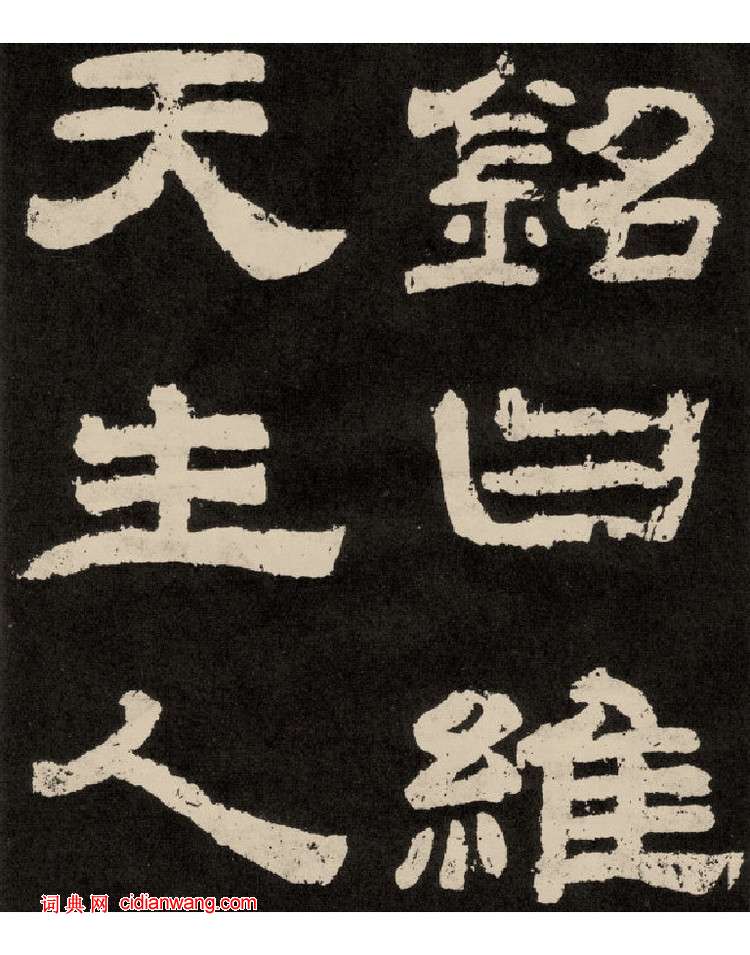 銘曰維
天生人
词典网 cidianwang.com